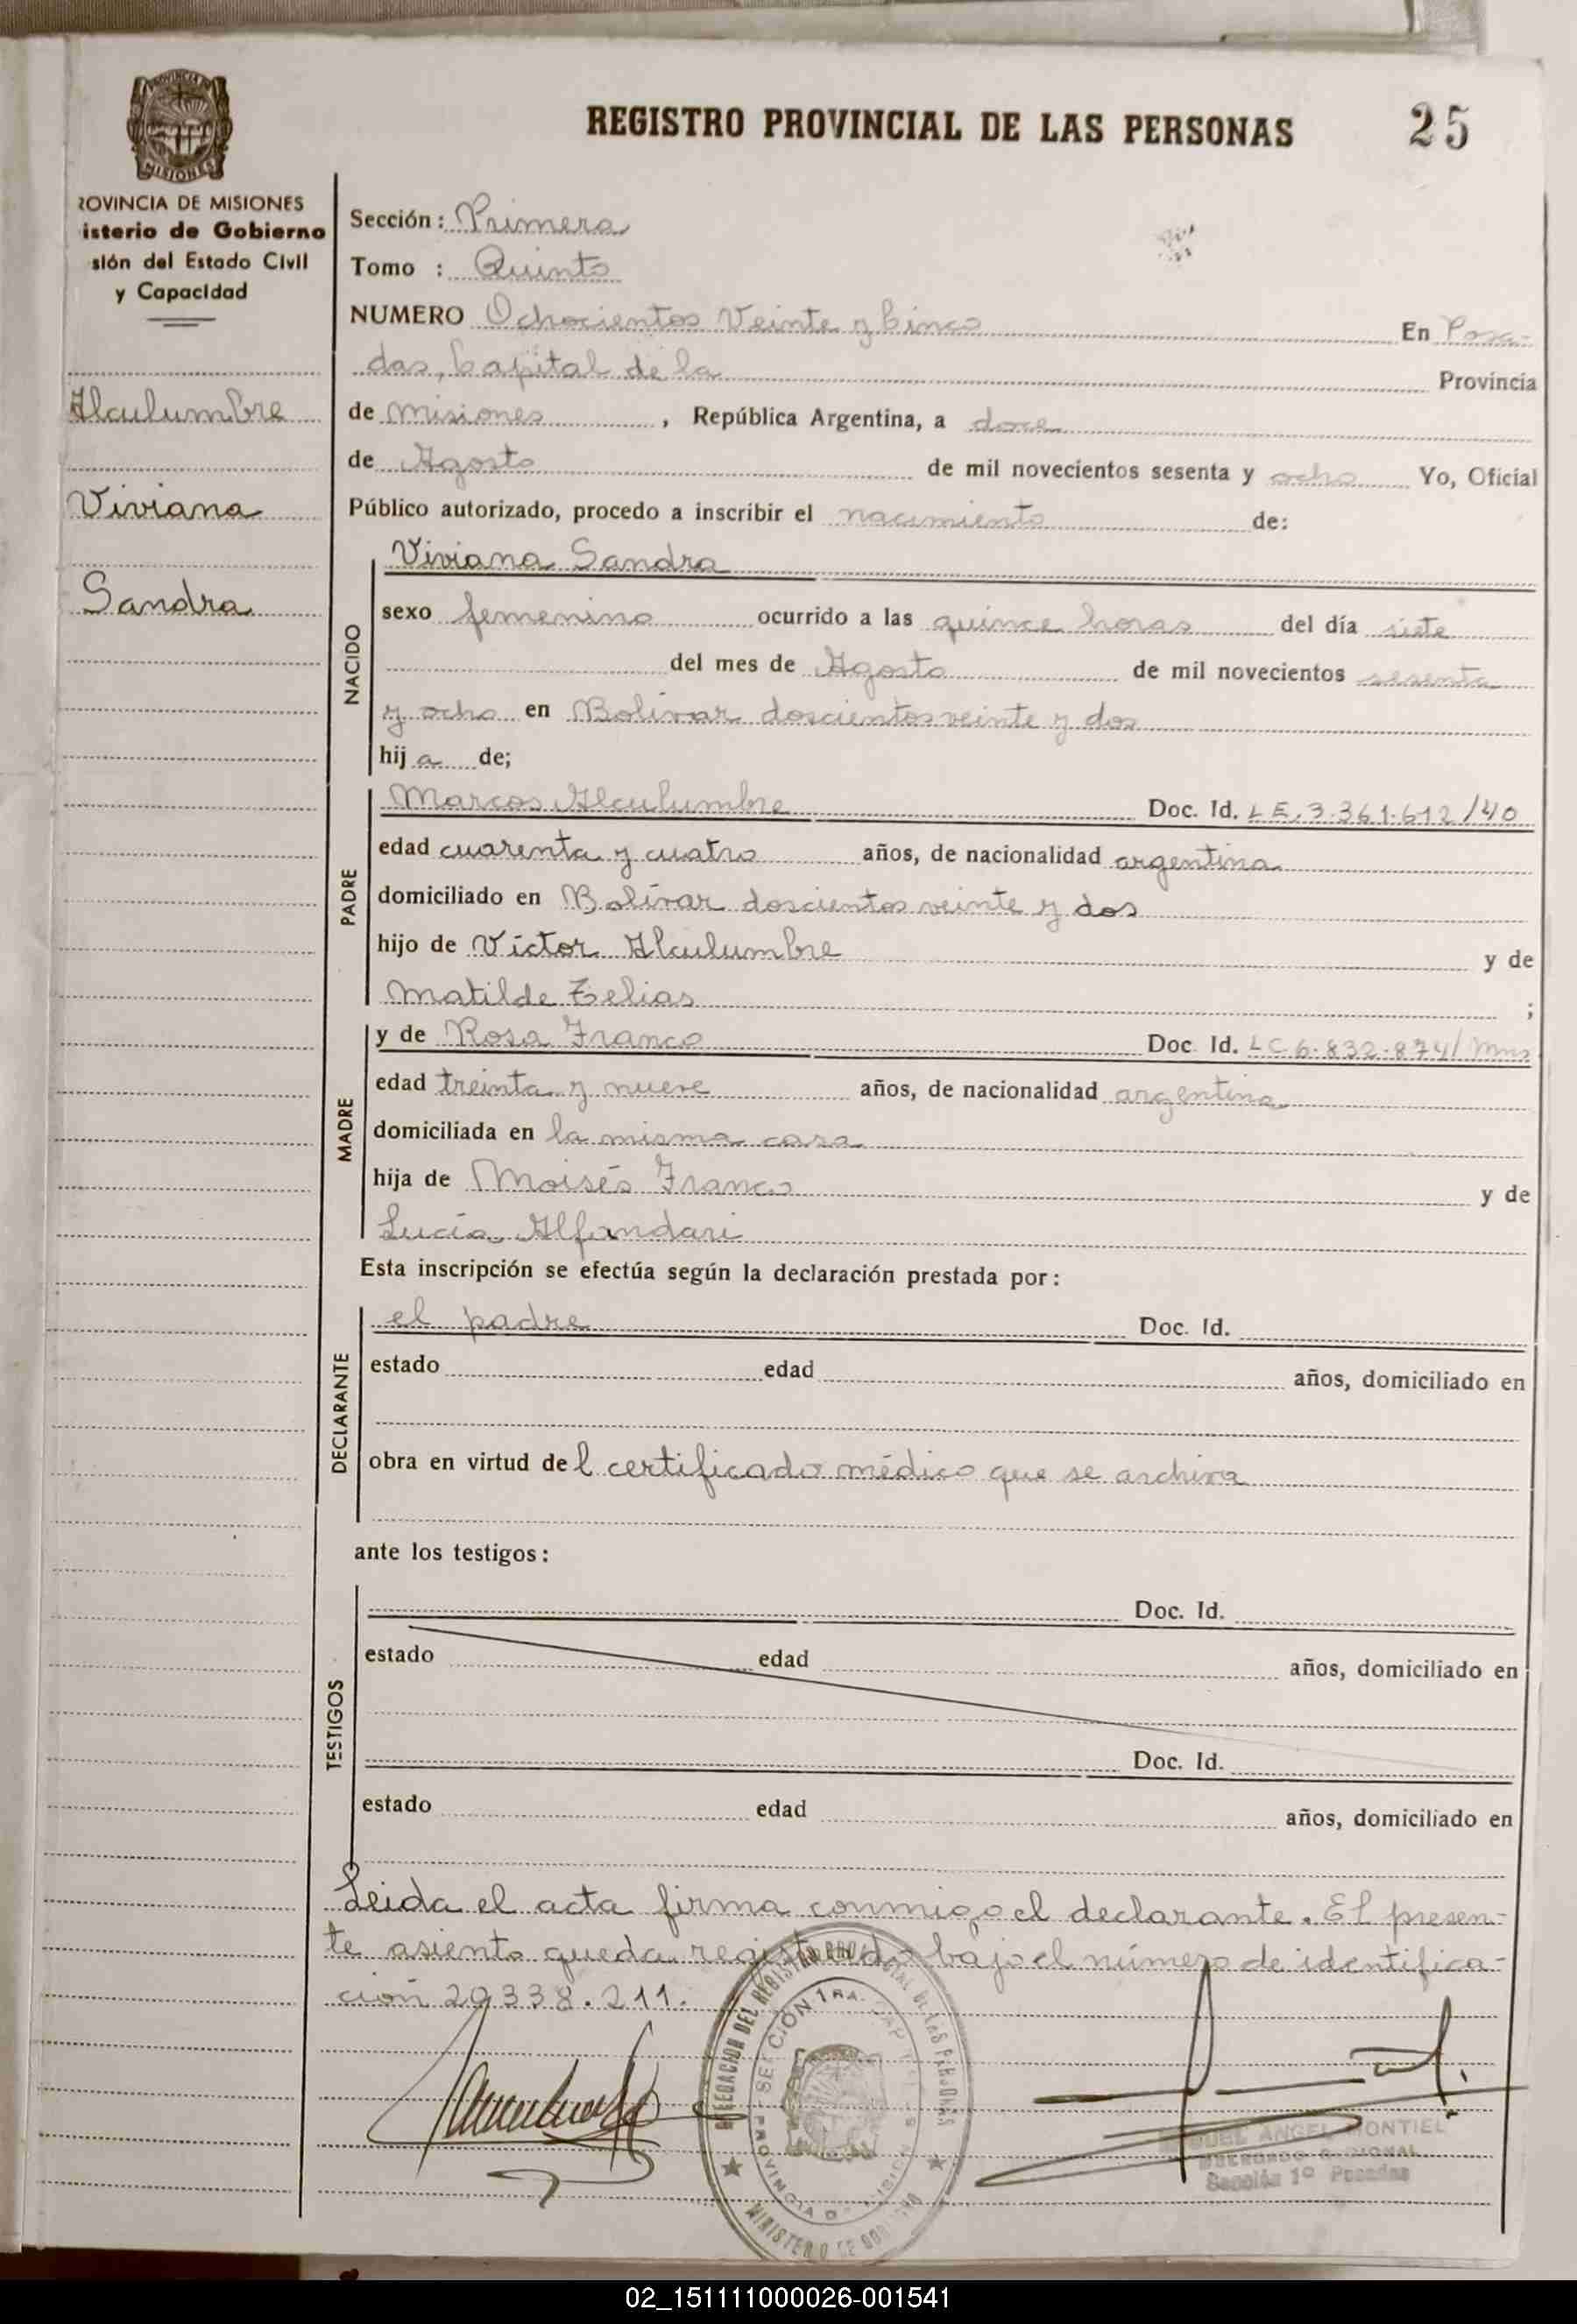 REGISTRO PROVINCIAL DE LAS PERSONAS 25
MISIONES
ROVINCIA DE MISIONES
isterio de Gobierno
sión del Estado Civil
y Capacidad
Alculumbre
Viviana
Sandra
Sección: Primera
Tomo : Quinto
NUMERO Ochocientos Veinte y Cinco En Posa-
das, Capital de la Provincia
de Misiones , República Argentina, a doce
de Agosto de mil novecientos sesenta y ocho Yo, Oficial
Público autorizado, procedo a inscribir el nacimiento de:
NACIDO
Viviana Sandra
sexo femenino ocurrido a las quince horas del día siete
del mes de Agosto de mil novecientos sesenta
y ocho en Bolívar doscientos veinte y dos
hij a de;
PADRE
Marcos Alculumbre Doc. Id. L E. 3.361.612/40
edad cuarenta y cuatro años, de nacionalidad argentina
domiciliado en Bolívar doscientos veinte y dos
hijo de Víctor Alculumbre y de
Matilde Zelias ;
MADRE
y de Rosa Franco Doc Id. L C 6.832.874/Mns
edad treinta y nueve años, de nacionalidad argentina
domiciliada en la misma casa
hija de Moisés Franco y de
Lucía Alfandari
Esta inscripción se efectúa según la declaración prestada por:
DECLARANTE
el padre Doc. Id.
estado edad años, domiciliado en
obra en virtud del certificado médico que se archiva
ante los testigos:
TESTIGOS
Doc. Id.
estado edad años, domiciliado en
Doc. Id.
estado edad años, domiciliado en
Leida el acta firma conmigo el declarante. El presen-
te asiento queda registrado bajo el número de identifica-
ción 20338.211.
DELEGACION DEL REGISTRO PROVINCIAL DE LAS PERSONAS
SECCION 1RA.
PROVINCIA
MINISTERIO DE GOBIERNO
ANGEL MONTIEL
Sección 1º Posadas
02_151111000026-001541